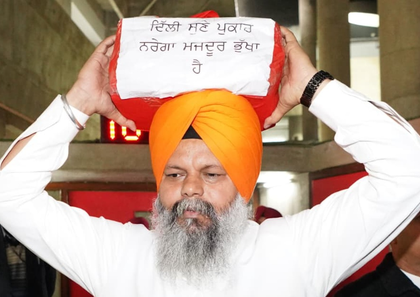 ਦਿੱਲੀ ਸੁਣੋ ਪੁਕਾਰ
ਨਰੇਗਾ ਮਜਦੂਰ ਭੁੱਖਾ
ਹੈ